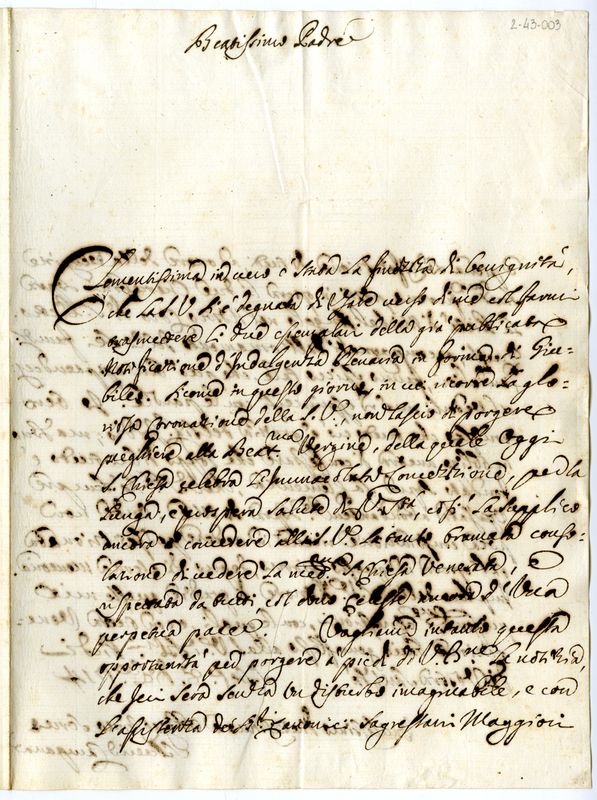 2-43-003
Beatissimo Padre
Clementissima in vero è stata la finezza di benignità,
che la S. V. si è degnata di usare verso di me col farmi
trasmettere li due esemplari della già publicata
Notificazione d'Indulgenza Plenaria in forma di Giu-
bileo. Siccome in questo giorno, in cui ricorre la glo-
riosa Coronazione della S. V., non lascio di porgere
preghiere alla Beat.ma Vergine, della quale oggi
S. Chiesa celebra l'Immacolata Concezzione, per la
lunga, e prospera salute di V. Stà, così la supplico
ancora a concedere alla S. V. la tanto bramata conso-
lazione di vedere la med.ma S. Chiesa venerata, e
rispettata da tutti, col dono celeste ancora d'una
perpetua pace. Vagliami intanto questa
opportunità per porgere a' piedi di V. B.ne la notizia,
che jeri sera senza un disturbo imaginabile, e con
l'assistenza de SS.i Canonici Sagrestani Maggiori